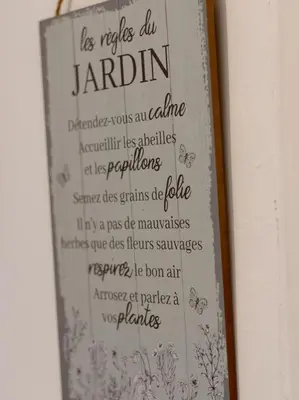 les règles du
JARDIN
Détendez-vous au calme
Accueillir les abeilles
et les papillons
Semez des grains de folie
Il n'y a pas de mauvaises
herbes que des fleurs sauvages
respirez le bon air
Arrosez et parlez à
vos plantes